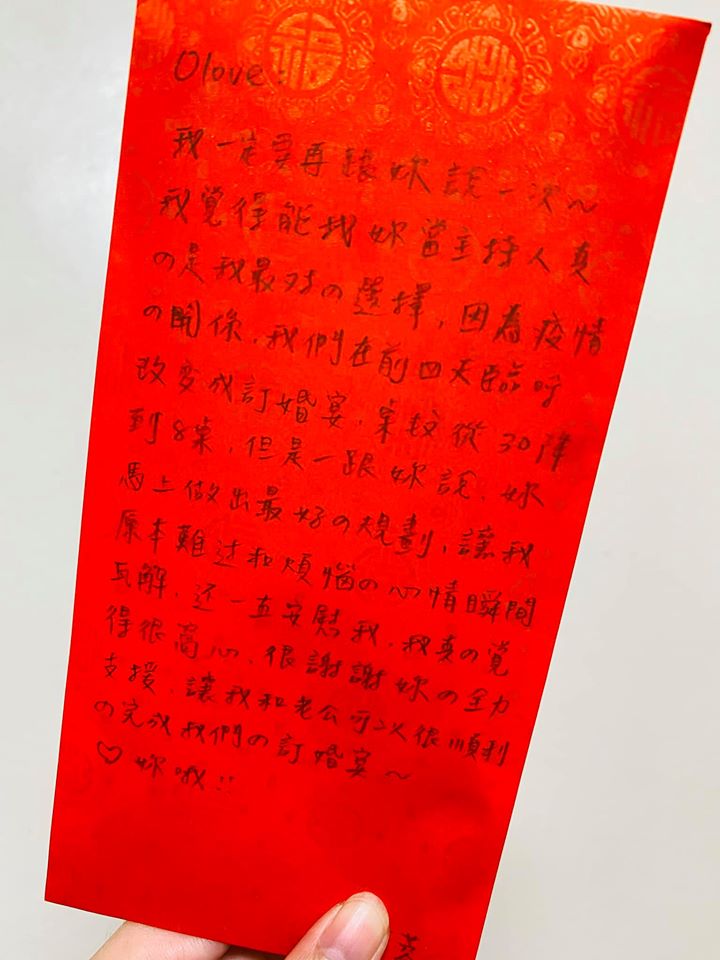 Olove:
我一定要再跟妳說一次～
我覺得能找妳當主持人真
の是我最对の選擇，因為疫情
の關係，我們在前四天臨時
改变成訂婚宴，桌数從30降
到8桌，但是一跟妳說，妳
馬上做出最好の規劃，讓我
原本難过和煩惱の心情瞬間
瓦解，还一直安慰我，我真の覺
得很窩心，很謝謝妳の全力
支援，讓我和老公可以很順利
の完成我們の訂婚宴～
♡妳哦!!